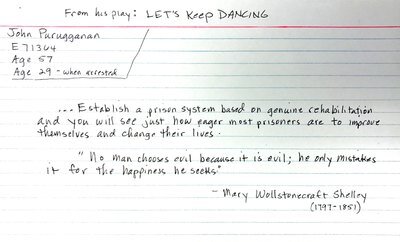 From his play: LET'S KEEP DANCING
John Purugganan
E71364
Age 57
Age 29 - when arrested
... Establish a prison system based on genuine rehabilitation
and you will see just how eager most prisoners are to improve
themselves and change their lives.
"No man chooses evil because it is evil; he only mistakes
it for the happiness he seeks."
- Mary Wollstonecraft Shelley
(1797-1851)